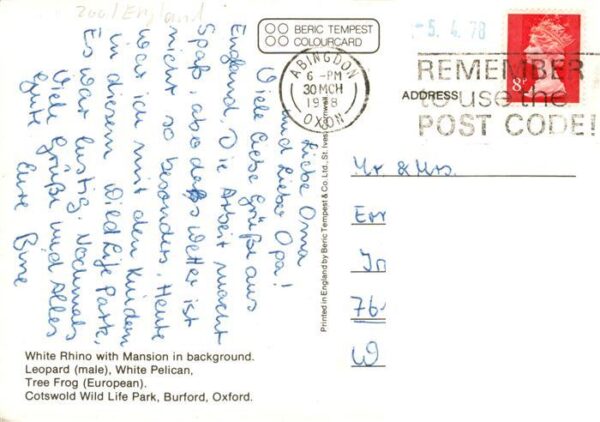 zoo/England
BERIC TEMPEST
COLOURCARD
ABINGDON
6-PM
30 MCH
1978
OXON
-5. 4. 78
REMEMBER
to use the
POST CODE!
8P
ADDRESS
Liebe Oma
und lieber Opa!
Viele liebe Grüße aus
England. Die Arbeit macht
Spaß, aber das Wetter ist
nicht so besonders. Heute
war ich mit den Kindern
in diesem Wild Life Park,
Es war lustig. Nochmals
viele Grüße und Alles
Gute Eure Bine
Printed in England by Beric Tempest & Co. Ltd., St. Ives, Cornwall
Mr & Mrs.
76-
W
White Rhino with Mansion in background.
Leopard (male), White Pelican,
Tree Frog (European).
Cotswold Wild Life Park, Burford, Oxford.